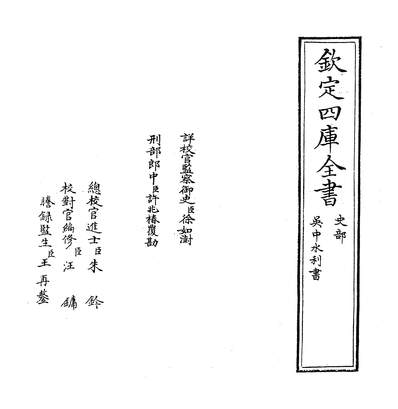 欽定四庫全書
史部
吳中水利書
詳校官監察御史臣徐如澍
刑部郎中臣許兆椿覆勘
總校官進士臣朱鈐
校對官編修臣汪鏞
謄錄監生臣王再鏊